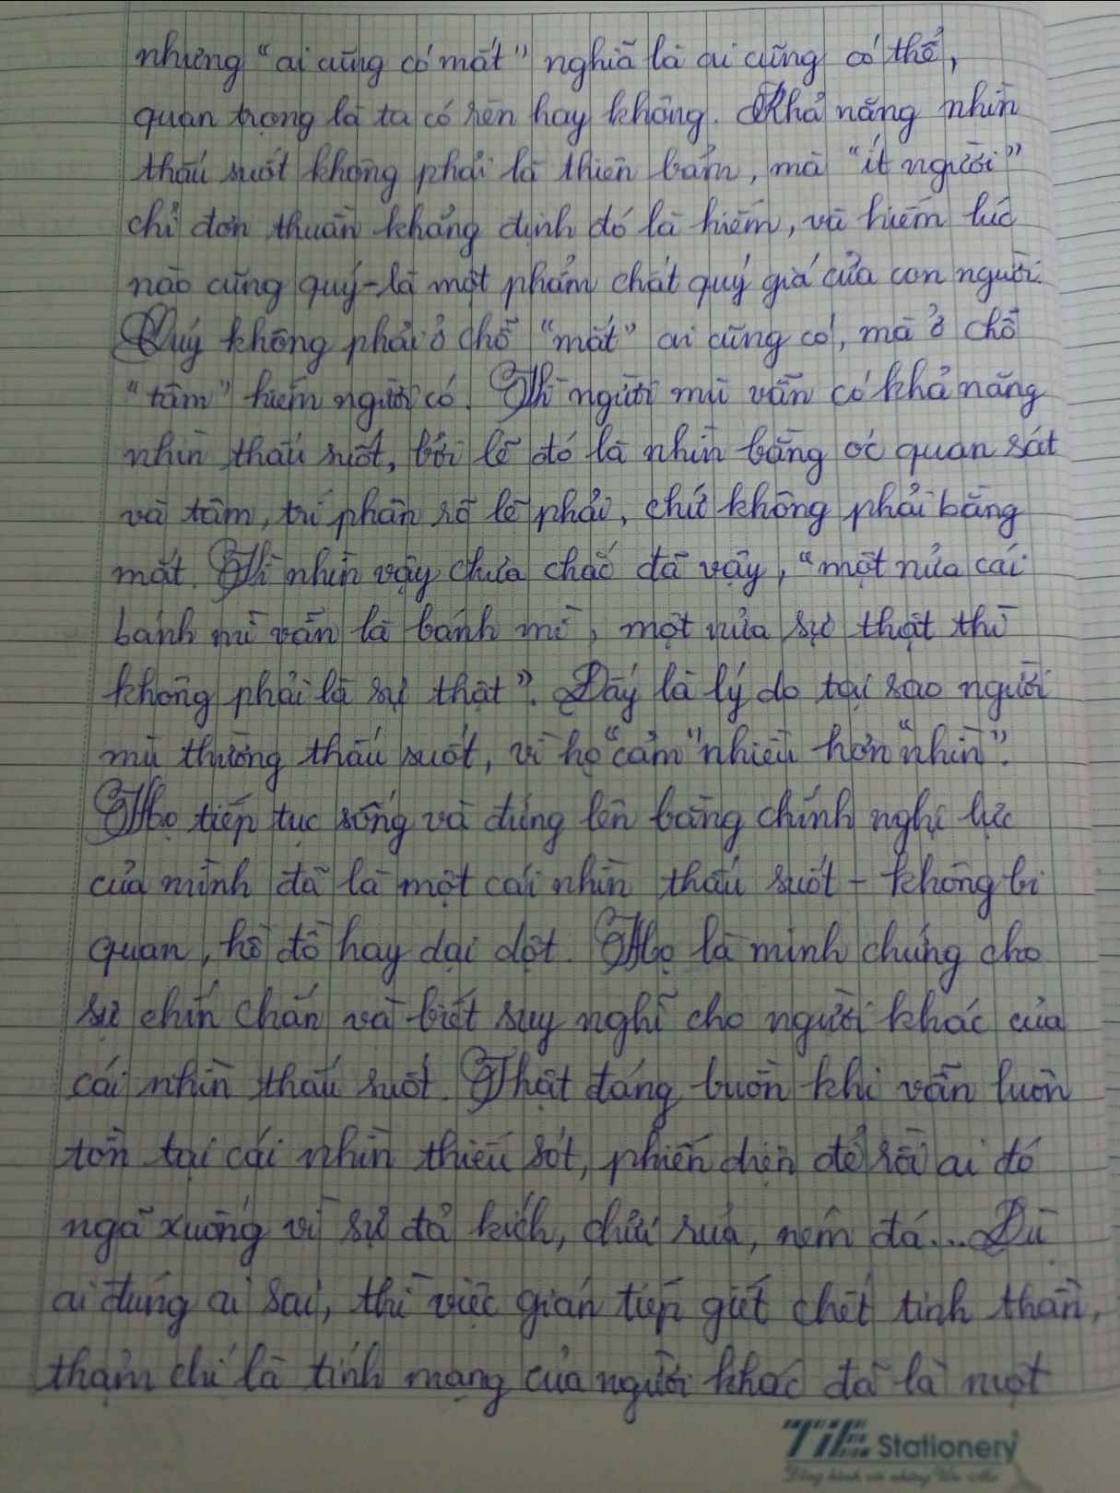 nhưng "ai cũng có mắt" nghĩa là ai cũng có thể,
quan trọng là ta có rèn hay không. Khả năng nhìn
thấu suốt không phải là thiên bẩm, mà "ít người"
chỉ đơn thuần khẳng định đó là hiếm, và hiếm lúc
nào cũng quý - là một phẩm chất quý giá của con người.
Quý không phải ở chỗ "mắt" ai cũng có, mà ở chỗ
"tâm" hiếm người có. Thì người mù vẫn có khả năng
nhìn thấu suốt, bởi lẽ đó là nhìn bằng óc quan sát
và tâm, trí phân rõ lẽ phải, chứ không phải bằng
mắt. Thì nhìn vậy chưa chắc đã vậy, "một nửa cái
bánh mì vẫn là bánh mì, một nửa sự thật thì
không phải là sự thật". Đấy là lý do tại sao người
mù thường thấu suốt, vì họ "cảm" nhiều hơn "nhìn".
Họ tiếp tục sống và đứng lên bằng chính nghị lực
của mình đã là một cái nhìn thấu suốt - không bi
quan, hồ đồ hay dại dột. Họ là minh chứng cho
sự chín chắn và biết suy nghĩ cho người khác của
cái nhìn thấu suốt. Thật đáng buồn khi vẫn luôn
tồn tại cái nhìn thiếu sót, phiến diện để rồi ai đó
ngã xuống vì sự đả kích, chửi rủa, ném đá... Dù
ai đúng ai sai, thì việc gián tiếp giết chết tinh thần,
thậm chí là tính mạng của người khác đã là một
TiE Stationery